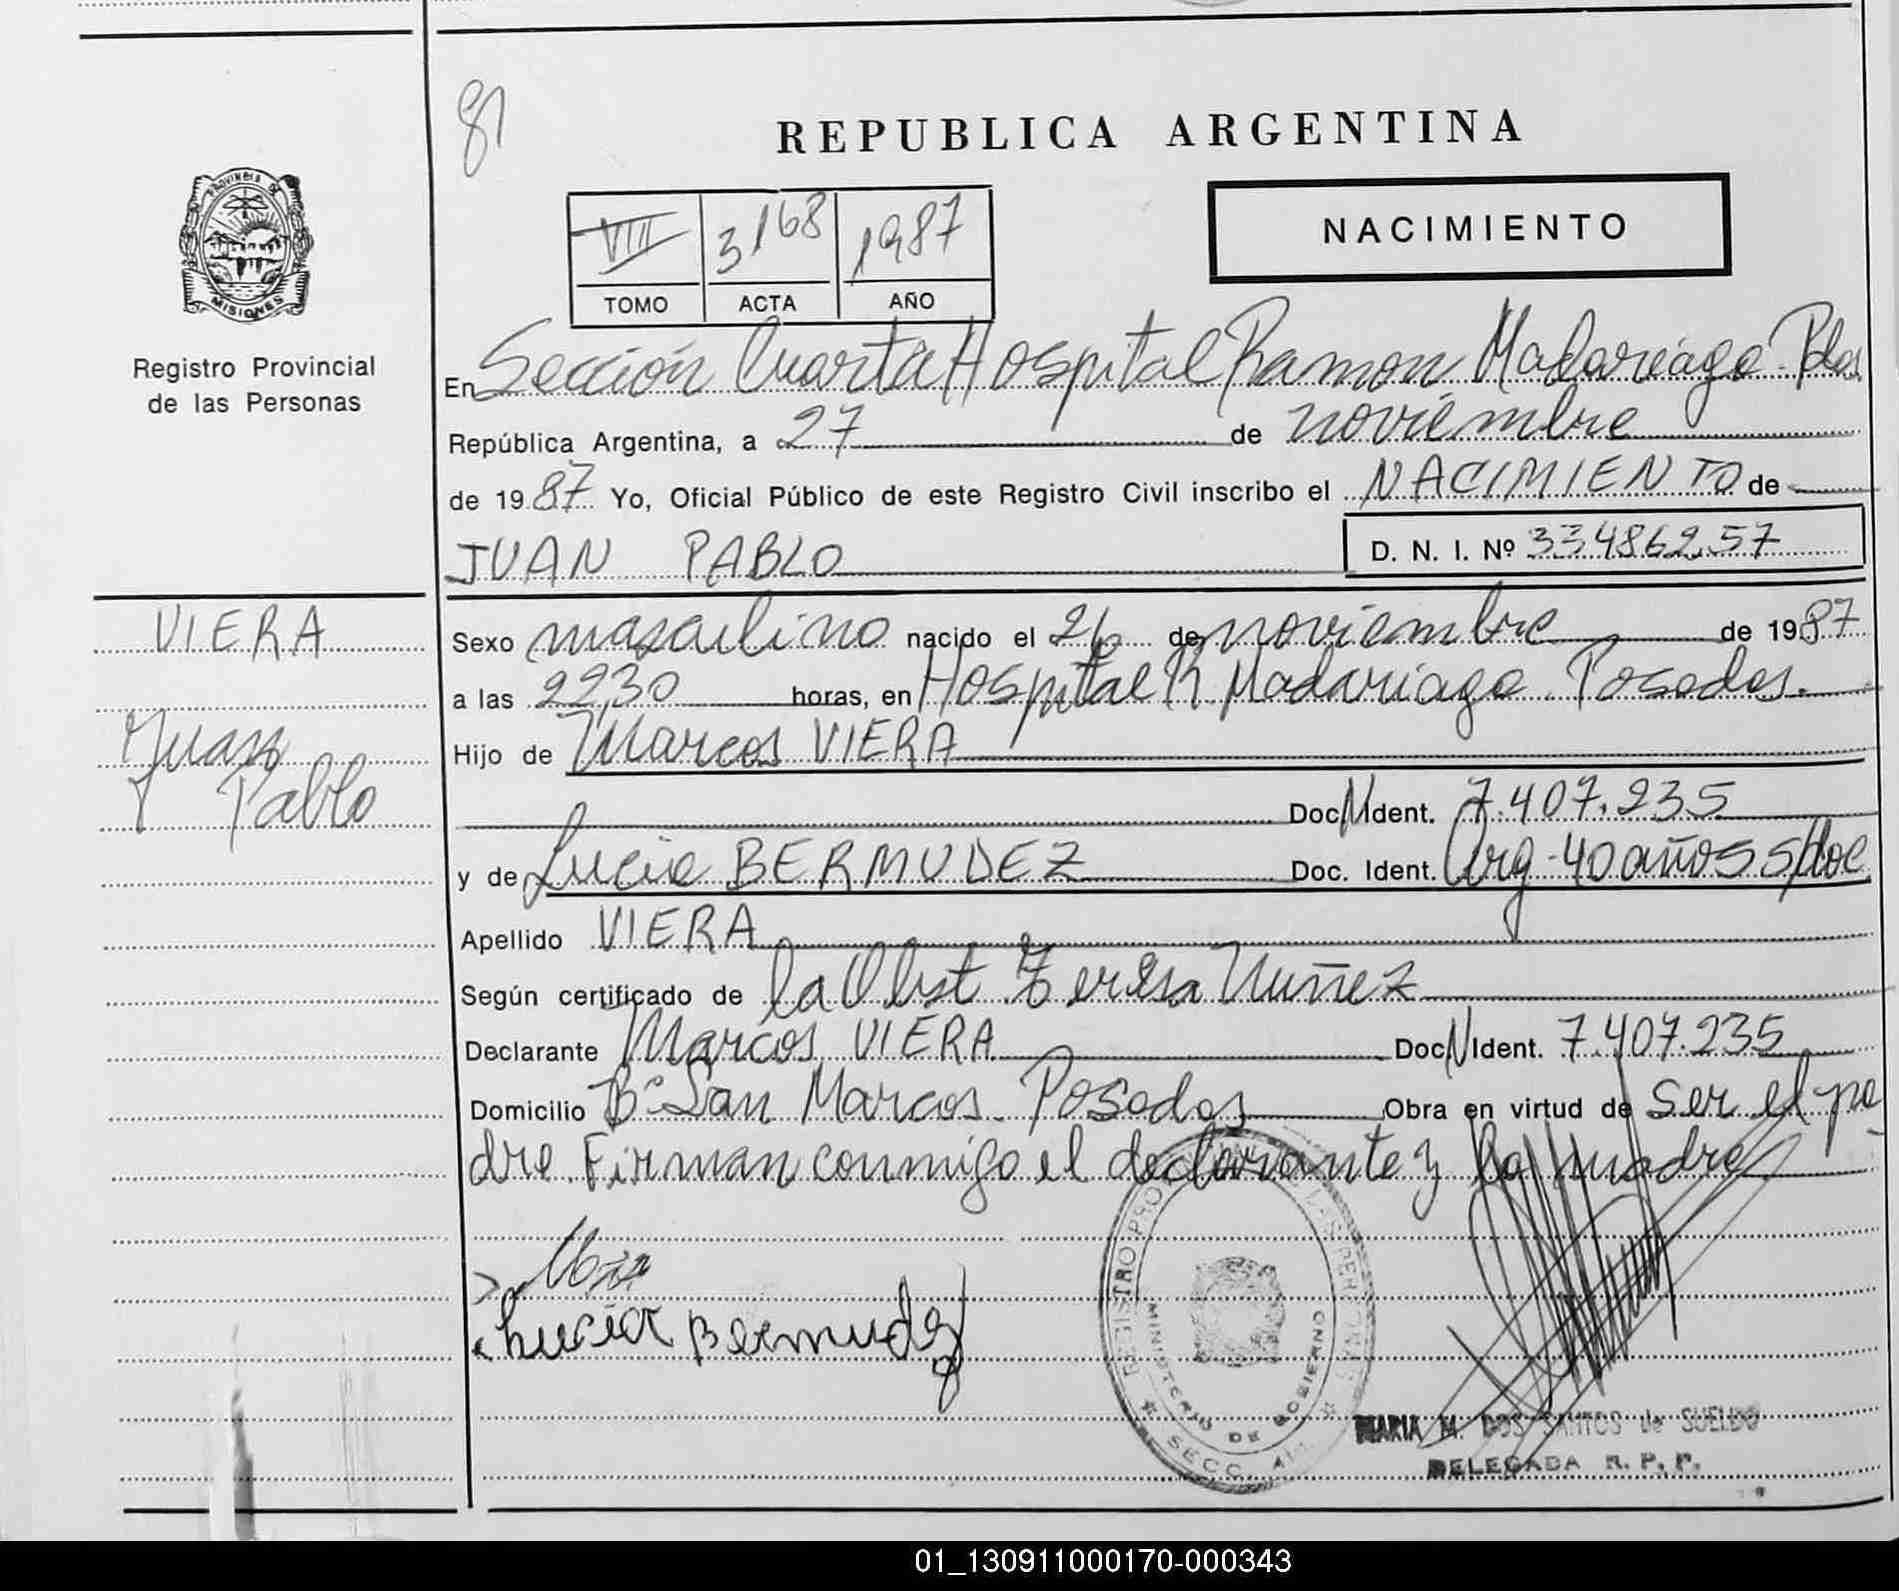 81
REPUBLICA ARGENTINA
PROVINCIA DE
MISIONES
Registro Provincial
de las Personas
VIII 3168 1987
TOMO ACTA AÑO
NACIMIENTO
En Sección Cuarta Hospital Ramon Madariaga - Pdas
República Argentina, a 27 de noviembre
de 1987 Yo, Oficial Público de este Registro Civil inscribo el NACIMIENTO de
JUAN PABLO
D. N. I. Nº 33486257
VIERA
Juan
Pablo
Sexo masculino nacido el 26 de noviembre de 1987
a las 22,30 horas, en Hospital R. Madariaga Posadas.
Hijo de Marcos VIERA
Doc. Ident. 7.407.235
y de Lucia BERMUDEZ Doc. Ident. Arg - 40 años s/doc
Apellido VIERA
Según certificado de la Obst Teresa Nuñez
Declarante Marcos VIERA Doc. Ident. 7.407.235
Domicilio Bº San Marcos. Posadas Obra en virtud de ser el pa-
dre. Firman conmigo el declarante y la madre
Lucia Bermudez
MINISTERIO DE GOBIERNO
SECC. 4ta
MARIA M. DOS SANTOS de SUELDO
DELEGADA R. P. P.
01_130911000170-000343